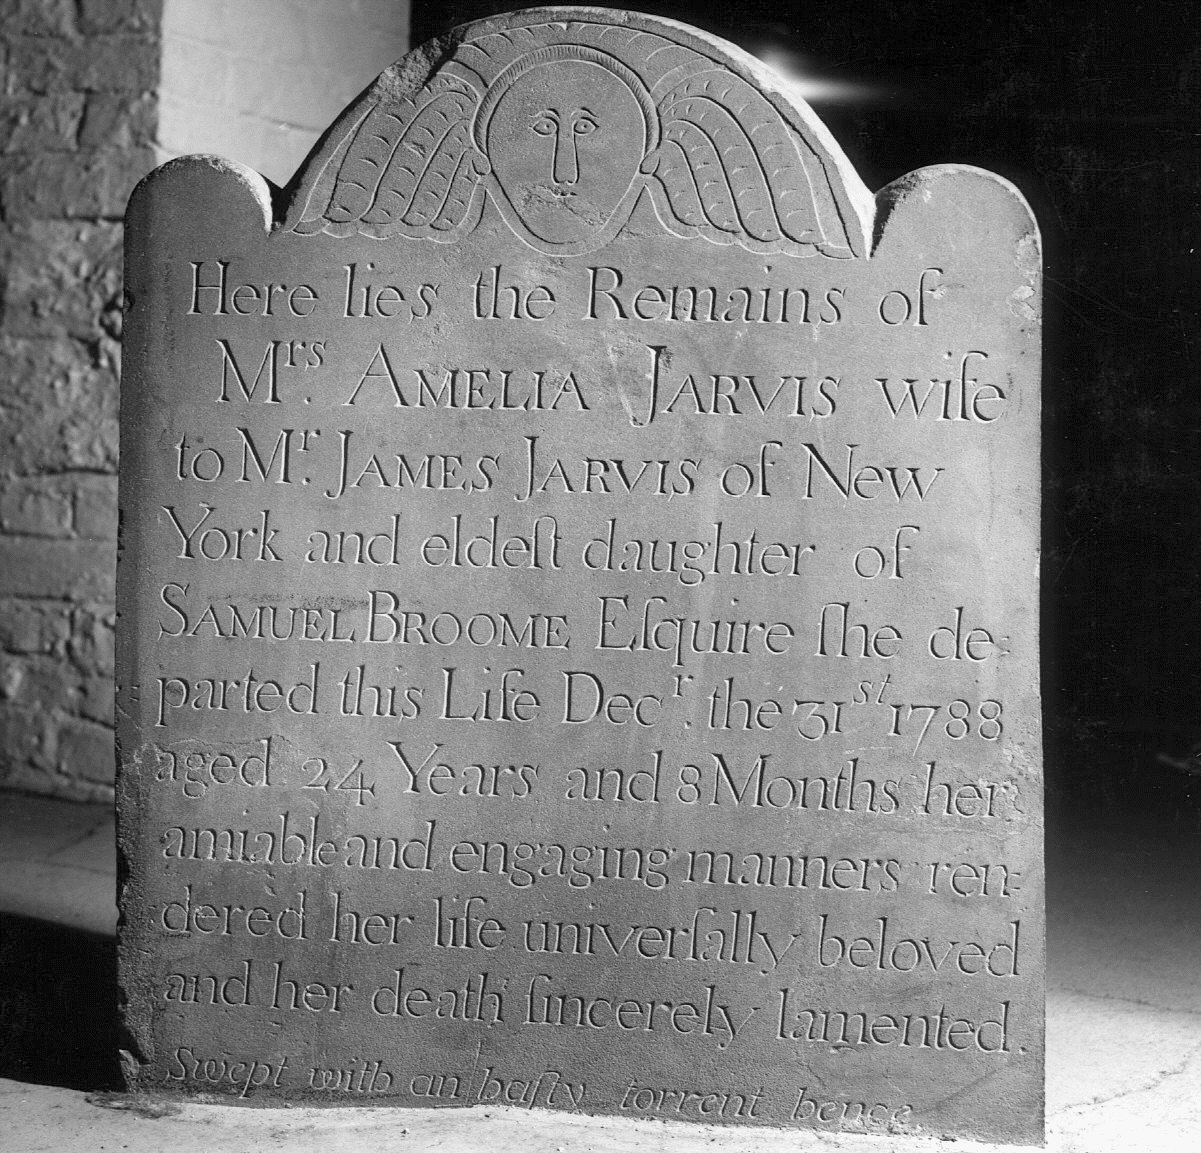 Here lies the Remains of
Mrs. AMELIA JARVIS wife
to Mr. JAMES JARVIS of New
York and eldeſt daughter of
SAMUEL BROOME Eſquire ſhe de-
parted this Life Decr. the 31st 1788
aged 24 Years and 8 Months her
amiable and engaging manners ren-
dered her life univerſally beloved
and her death ſincerely lamented.
Swept with an haſty torrent hence.